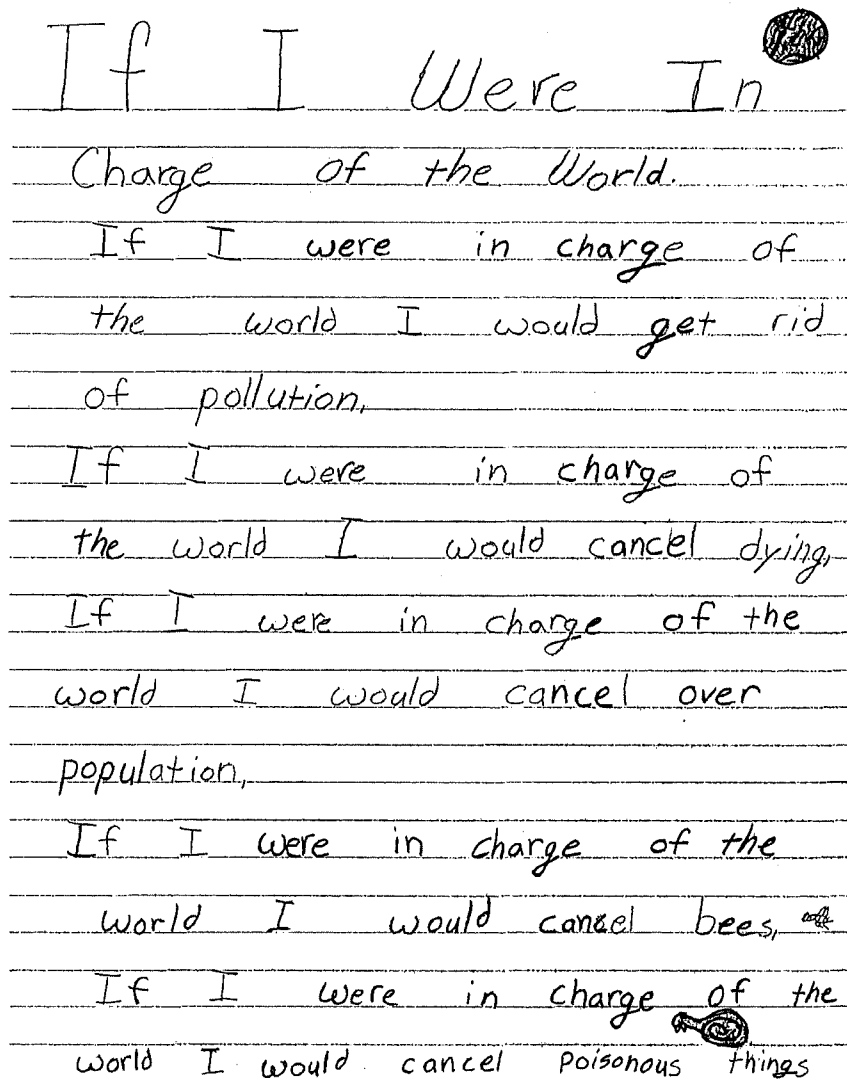 If I Were In
Charge of the World.
If I were in charge of
the world I would get rid
of pollution,
If I were in charge of
the world I would cancel dying,
If I were in charge of the
world I would cancel over
population,
If I were in charge of the
world I would cancel bees,
If I were in charge of the
world I would cancel poisonous things